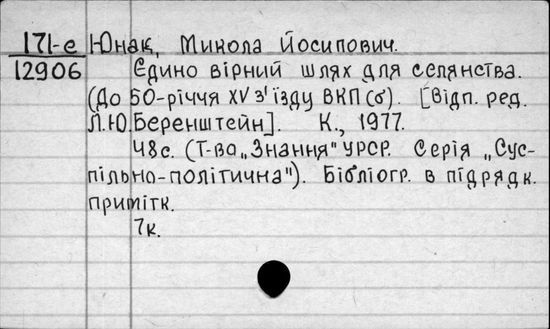 171-е Юнак, Микола Йосипович.
12906 Єдино вірний шлях для селянства.
(До 50-річчя XV з'їзду ВКП(б). [Відп. ред.
Л.Ю.Беренштейн]. К., 1977.
48с. (Т-во „Знання" УРСР. Серія „Сус-
пільно-політична"). Бібліогр. в підрядк.
примітк.
7к.